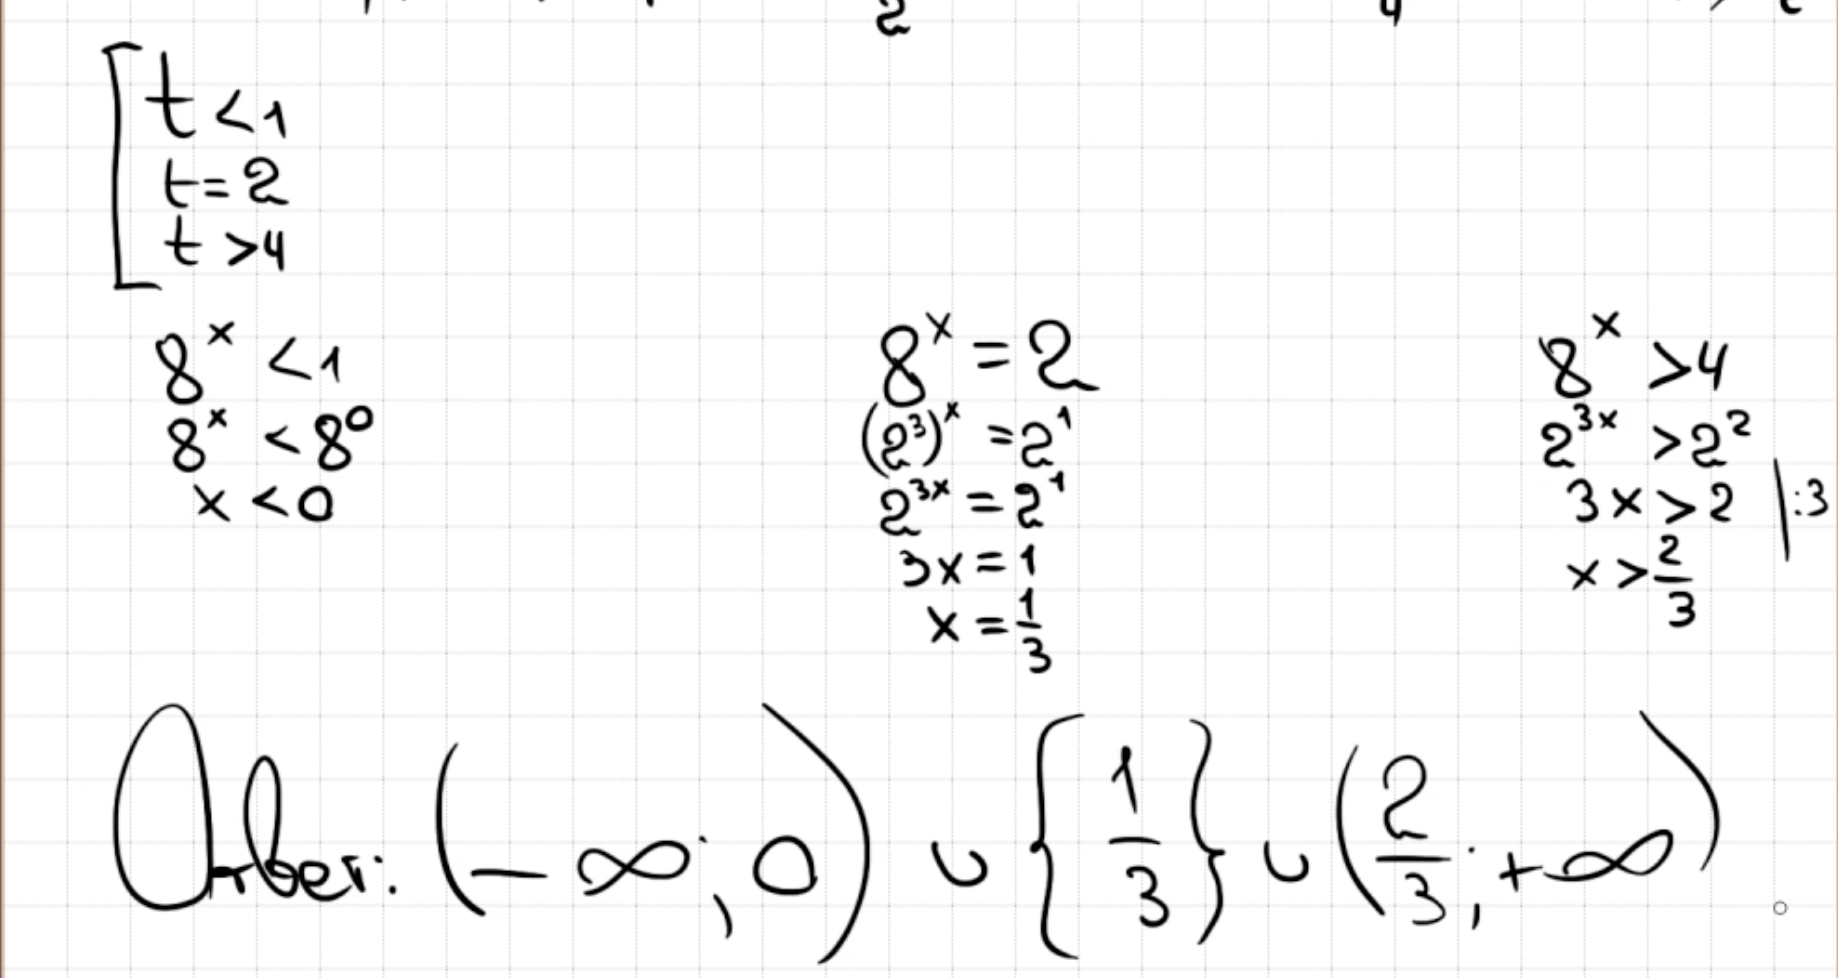 2 4
t < 1
t = 2
t > 4
8^x < 1
8^x < 8^0
x < 0
8^x = 2
(2^3)^x = 2^1
2^{3x} = 2^1
3x = 1
x = 1/3
8^x > 4
2^{3x} > 2^2
3x > 2 | :3
x > 2/3
Ответ: (-∞; 0) ∪ {1/3} ∪ (2/3; +∞)